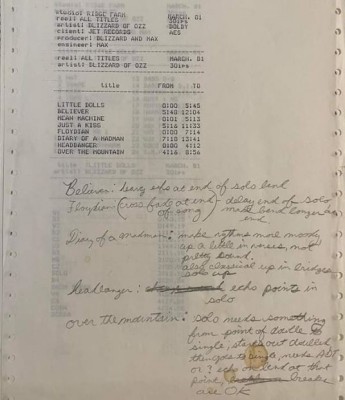 studio: RIDGE FARM MARCH. 81
reel: ALL TITLES 30ips
artist: BLIZZARD OF OZZ DOLBY
client: JET RECORDS AES
producer: BLIZZARD AND MAX
engineer: MAX
reel: ALL TITLES MARCH. 81
artist: BLIZZARD OF OZZ 30ips
title FROM TO
LITTLE DOLLS 0100 5145
BELIEVER 5140 12104
MEAN MACHINE 0101 5113
JUST A KISS 5116 11133
FLOYDIAN 0100 7114
DIARY OF A MADMAN 7110 13141
HEADBANGER 0100 4112
OVER THE MOUNTAIN 4116 8156
Believer: heavy echo at end of solo land
Floydian (cross fade at end of song) - delay end of solo make land longer on end
Diary of a madman: make rythms more moody
up a little in verses, not
pretty sound.
also classical up in bridges
solo up
headbanger: echo points in
solo
over the mountain: solo needs something
from point of double to
single; starts out doubled
then goes to single, needs
or? echo on lead at that
point, breaks
are OK